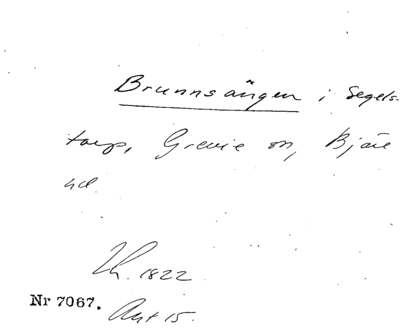 Brunnsängen i Segels-
torp, Grevie sn, Bjäre
hd
Lh. 1822
Nr 7067. Akt 15.